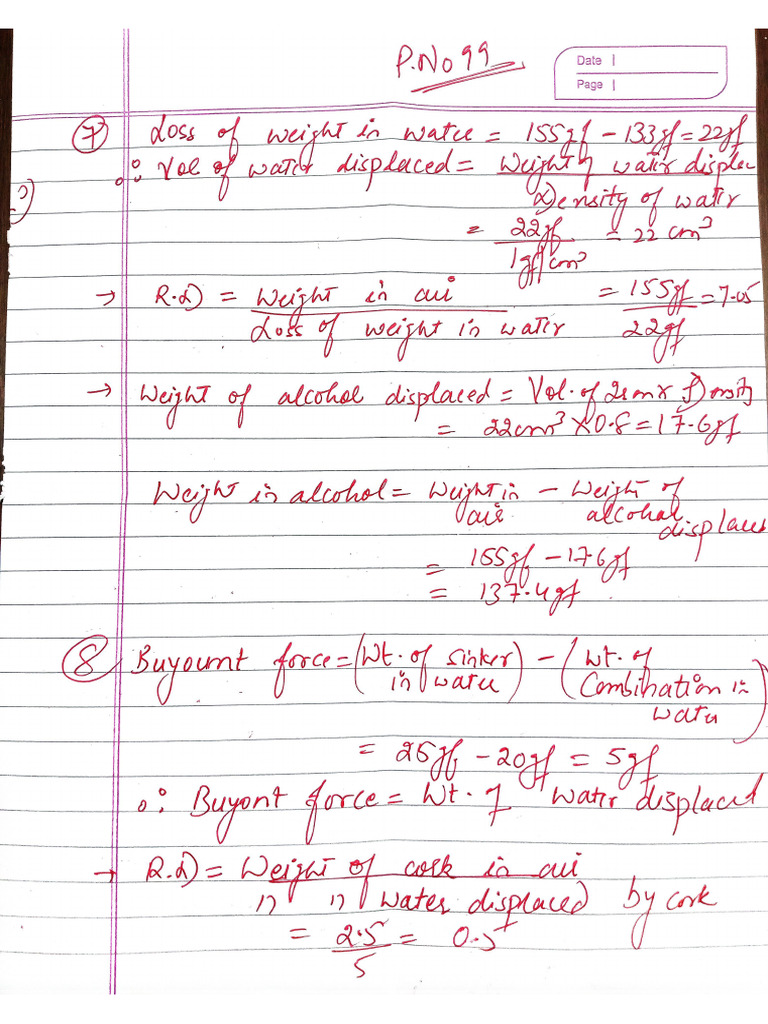 P.No 99
Date
Page
7 Loss of weight in water = 155gf - 133gf = 22gf
∴ Vol of water displaced = Weight of water displac
Density of water
= 22gf = 22 cm³
1gf/cm³
→ R.D = Weight in air = 155gf = 7.05
Loss of weight in water 22gf
→ Weight of alcohol displaced = Vol. of Density
= 22cm³ × 0.8 = 17.6gf
Weight in alcohol = Weight in - Weight of
air alcohol
displaced
= 155gf - 17.6gf
= 137.4gf
8 Buyount force = (Wt. of sinker) - (Wt. of
in water Combination in
water)
= 25gf - 20gf = 5gf
∴ Buyont force = Wt. of water displaced
→ R.D = Weight of cork in air
" " water displaced by cork
= 2.5 = 0.5
5